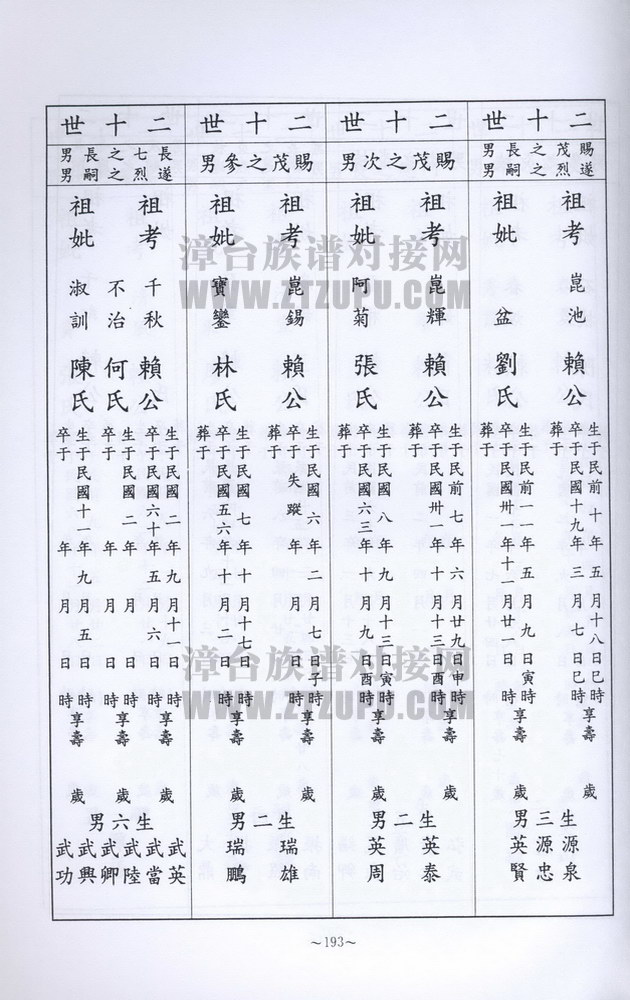 二十世
賜茂之長男
遂烈之嗣男
祖考 崑池 賴公
生于民前十年五月十八日巳時享壽
卒于民國十九年三月七日巳時 歲
葬于
祖妣 盆 劉氏
生于民前一一年五月九日寅時享壽
卒于民國卅一年十一月廿一日 時 歲
葬于
生三男
源泉
源忠
英賢
二十世
賜茂之次男
祖考 崑輝 賴公
生于民前七年六月廿九日申時享壽
卒于民國卅一年十月十三日酉時 歲
葬于
祖妣 阿菊 張氏
生于民國八年九月十三日寅時享壽
卒于民國六三年十月九日酉時 歲
葬于
生二男
英泰
英周
二十世
賜茂之參男
祖考 崑錫 賴公
生于民國六年二月七日子時享壽
卒于失蹤年 月 日 時 歲
葬于
祖妣 寶鑾 林氏
生于民國七年十月十七日 時享壽
卒于民國五六年十月二日 時 歲
葬于
生二男
瑞雄
瑞鵬
二十世
長七之長男
遂烈之嗣男
祖考 千秋 賴公
生于民國二年九月十一日 時享壽
卒于民國六十年五月六日 時 歲
不治 何氏
生于民國二年 月 日 時享壽
卒于 年 月 日 時 歲
祖妣 淑訓 陳氏
生于民國十一年九月五日 時享壽
卒于 年 月 日 時 歲
生六男
武英
武當
武陸
武卿
武興
武功
~193~
漳台族谱对接网
WWW.ZTZUPU.COM
漳台族谱对接网
WWW.ZTZUPU.COM